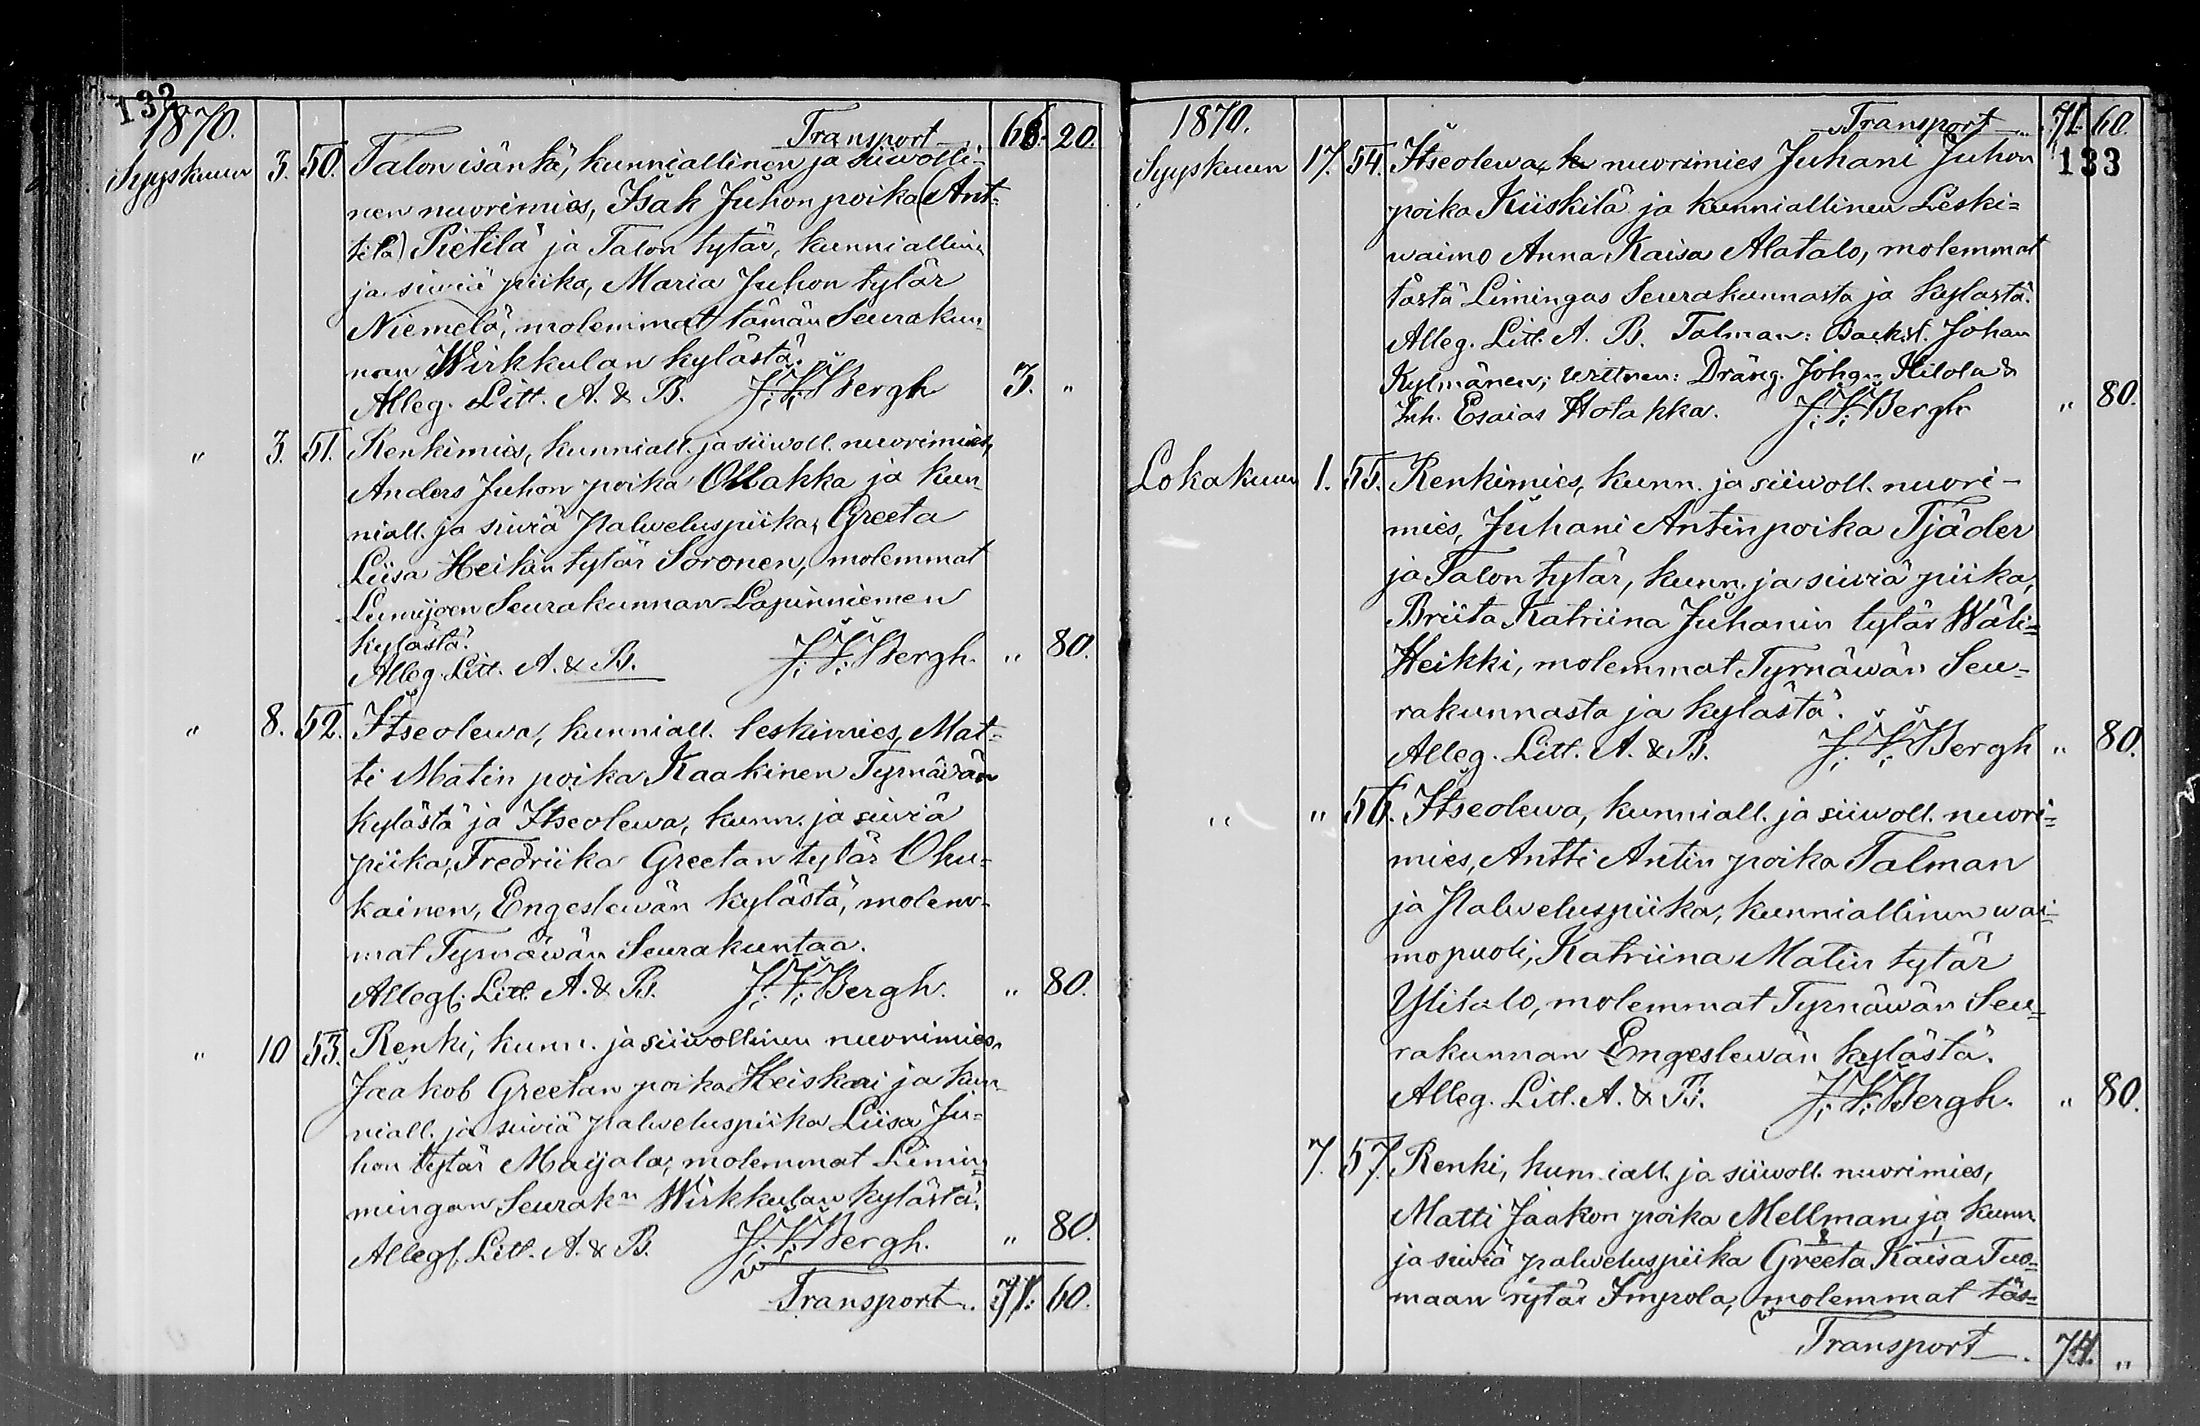 132
1870.
Transport 66. 20.
Syyskuun 3. 50. Talon isäntä, kunniallinen ja siiwolli-
nen nuorimies, Isak Juhon poika (Ant-
tila) Pietilä ja Talon tytär, kunniallinen
ja siiviä piika, Maria Juhon tytär
Niemelä, molemmat tämän Seurakun-
nan Wirkkulan kylästä.
Alleg. Litt. A. & B. J. V. Bergh 3. "
" 3. 51. Renkimies, kunniall. ja siiwoll. nuorimies,
Anders Juhon poika Ollakka ja kun-
niall. ja siiviä Palweluspiika, Greeta
Liisa Heikin tytär Soronen, molemmat
Lumijoen Seurakunnan Lapinniemen
kylästä.
Alleg. Litt. A. & B. J. V. Bergh. " 80.
" 8. 52. Itseolewa, kunniall. leskimies, Mat-
ti Matin poika Kaakinen Tyrnäwän
kylästä ja Itseolewa, kunn. ja siiviä
piika, Fredriika Greetan tytär Oku-
kainen, Engeslewän kylästä, molem-
mat Tyrnäwän Seurakuntaa.
Alleg. Litt. A. & B. J. V. Bergh. " 80.
" 10 53. Renki, kunn. ja siiwollinen nuorimies,
Jaakob Greetan poika Heiskari ja kun-
niall. ja siiviä palweluspiika Liisa Ju-
hon tytär Maijala, molemmat Limin-
mingan Seurakn Wirkkulan kylästä.
Alleg. Litt. A. & B. J. V. Bergh. " 80.
Transport. 71. 60.
1870.
Transport 71. 60.
133
Syyskuun 17. 54. Itseolewa, nuorimies Juhani Juhon
poika Kiiskilä ja kunniallinen Leski-
waimo Anna Kaisa Alatalo, molemmat
tästä Limingas Seurakunnasta ja kylästä.
Alleg. Litt. A. B. Talman: Backst. Johan
Kylmänen; Wittnen: Dräng. Johan Hilola &
Inh. Esaias Hotakka. J. V. Bergh " 80.
Lokakuun 1. 55. Renkimies, kunn. ja siiwoll. nuori-
mies, Juhani Antin poika Tjäder
ja Talon tytär, kunn. ja siiviä piika,
Briita Katriina Juhanin tytär Wäli-
Heikki, molemmat Tyrnäwän Seu-
rakunnasta ja kylästä.
Alleg. Litt. A. & B. J. V. Bergh " 80.
" " 56. Itseolewa, kunniall. ja siiwoll. nuori-
mies, Antti Antin poika Talman
ja Palweluspiika, kunniallinen wai-
mopuoli, Katriina Matin tytär
Ylitalo, molemmat Tyrnäwän Seu-
rakunnan Engeslewän kylästä.
Alleg. Litt. A. & B. J. V. Bergh. " 80.
7. 57. Renki, kunniall. ja siiwoll. nuorimies,
Matti Jaakon poika Mellman ja kunn.
ja siiviä palweluspiika Greeta Kaisa Tuo-
maan tytär Impola, molemmat täs-
Transport 74. "